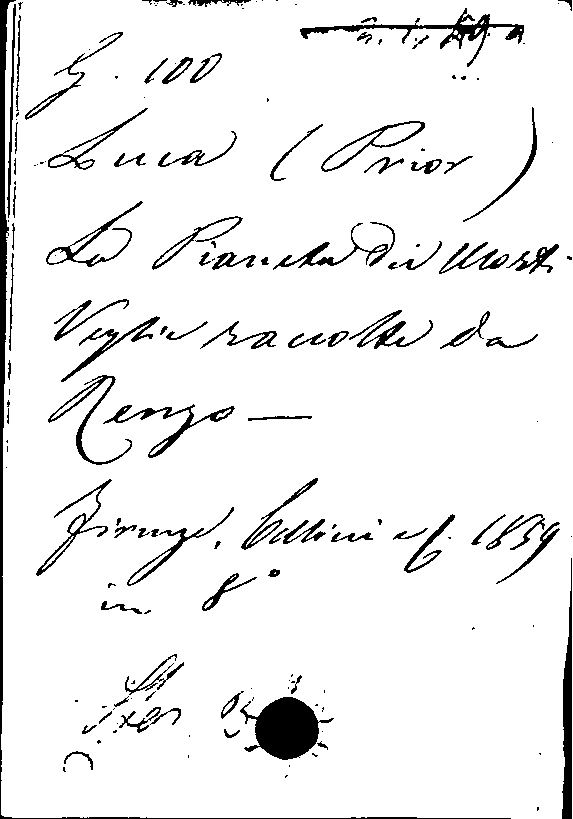 G. 100
Luca (Prior)
La Pianeta dei Morti
Veglie raccolte da
Renzo —
Firenze, Cellini e f. 1859
in 8°